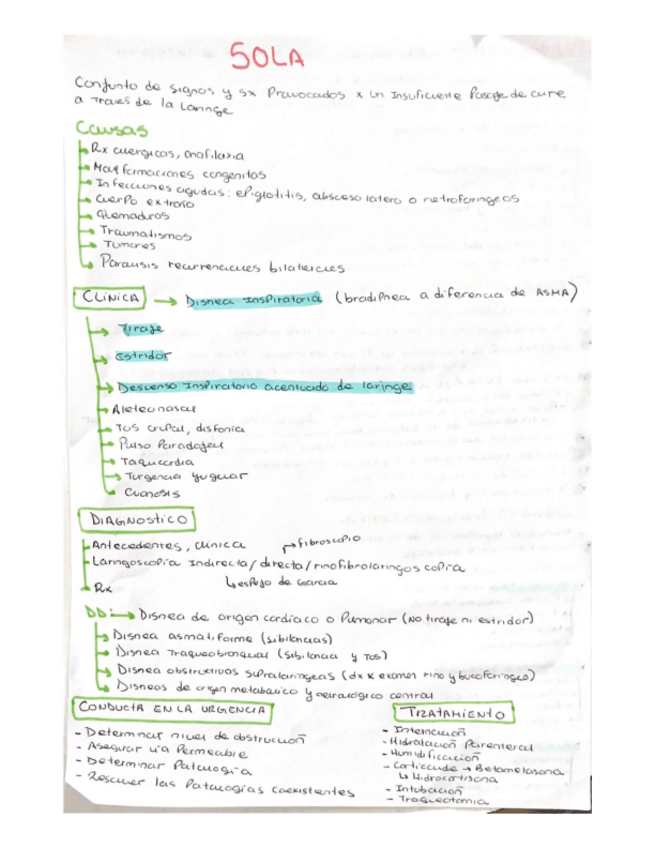 SOLA
Conjunto de signos y sx Provocados x un Insuficiente Pasaje de aire
a Traves de la Laringe
Causas
Rx alergicas, anafilaxia
Malformaciones congenitas
Infecciones agudas: epiglotitis, absceso latero o retrofaringeos
Cuerpo extraño
Quemaduras
Traumatismos
Tumores
Paralisis recurrenciales bilaterales
CLINICA → Disnea Inspiratoria (bradipnea a diferencia de ASMA)
Tiraje
Estridor
Descenso Inspiratorio acentuado de laringe
Aleteo nasal
Tos crupal, disfonia
Pulso Paradojal
Taquicardia
Turgencia yugular
Cianosis
DIAGNOSTICO
Antecedentes, clinica → fibroscopio
Laringoscopia Indirecta/directa/rinofibrolaringoscopia
↳ espejo de Garcia
Rx
DD: → Disnea de origen cardiaco o Pulmonar (No tiraje ni estridor)
Disnea asmatiforme (sibilancias)
Disnea Traqueobronquial (sibilancia y Tos)
Disnea obstructivas supralaringeas (dx x examen rino y bucofaringeo)
Disneas de origen metabolico y neurologico central
CONDUCTA EN LA URGENCIA
- Determinar nivel de obstrucción
- Asegurar via Permeable
- Determinar Patologia
- Resolver las Patologias coexistentes
TRATAMIENTO
- Internación
- Hidratación Parenteral
- Humidificación
- Corticoide → Betametasona
↳ Hidrocortisona
- Intubación
- Traqueotomia